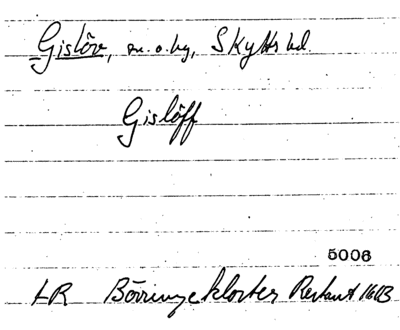 Gislöv, sn. o. by, Skytts hd.
Gislöff
5006
LR Börringekloster Restant 1613